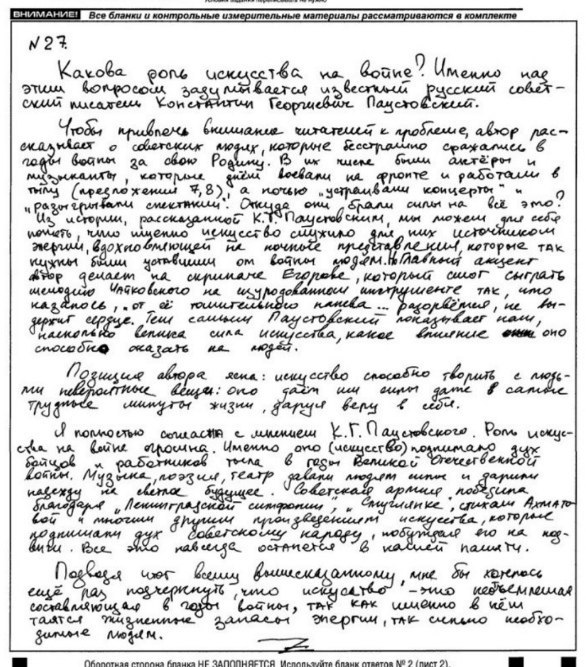 Условия задания переписывать не нужно
ВНИМАНИЕ! Все бланки и контрольные измерительные материалы рассматриваются в комплекте
N 27.
Какова роль искусства на войне? Именно над
этим вопросом задумывается известный русский совет-
ский писатель Константин Георгиевич Паустовский.
Чтобы привлечь внимание читателей к проблеме, автор рас-
сказывает о советских людях, которые бесстрашно сражались в
годы войны за свою Родину. В их числе были актёры и
музыканты, которые днём воевали на фронте и работали в
тылу (предложения 7,8), а ночью „устраивали концерты" и
„разыгрывали спектакли". Откуда они брали силы на всё это?
Из истории, рассказанной К.Г. Паустовским, мы можем для себя
понять, что именно искусство служило для них источником
энергии, вдохновляющей на ночные представления, которые так
нужны были уставшим от войны людям. Главный акцент
автор делает на скрипаче Егорове, который смог сыграть
мелодию Чайковского на изуродованном инструменте так, что
казалось, „от её томительного напева ... разорвётся, не вы-
держит сердце. Тем самым Паустовский показывает нам,
насколько велика сила искусства, какое влияние оно
способно оказать на людей.
Позиция автора ясна: искусство способно творить с людь-
ми невероятные вещи: оно даёт им силы даже в самые
трудные минуты жизни, даруя веру в себя.
Я полностью согласна с мнением К.Г. Паустовского. Роль искус-
ства на войне огромна. Именно оно (искусство) поднимало дух
бойцов и работников тыла в годы Великой Отечественной
войны. Музыка, поэзия, театр давали людям силы и дарили
надежду на светлое будущее. Советская армия победила
благодаря „Ленинградской симфонии", „Смуглянке", стихам Ахмато-
вой и многим другим произведениям искусства, которые
поднимали дух советскому народу, побуждая его на под-
виги. Все это навсегда останется в нашей памяти.
Подводя итог всему вышесказанному, мне бы хотелось
ещё раз подчеркнуть, что искусство - это неотъемлемая
составляющая в годы войны, так как именно в нём
таятся жизненные запасы энергии, так сильно необхо-
димые людям.
Оборотная сторона бланка НЕ ЗАПОЛНЯЕТСЯ. Используйте бланк ответов № 2 (лист 2).